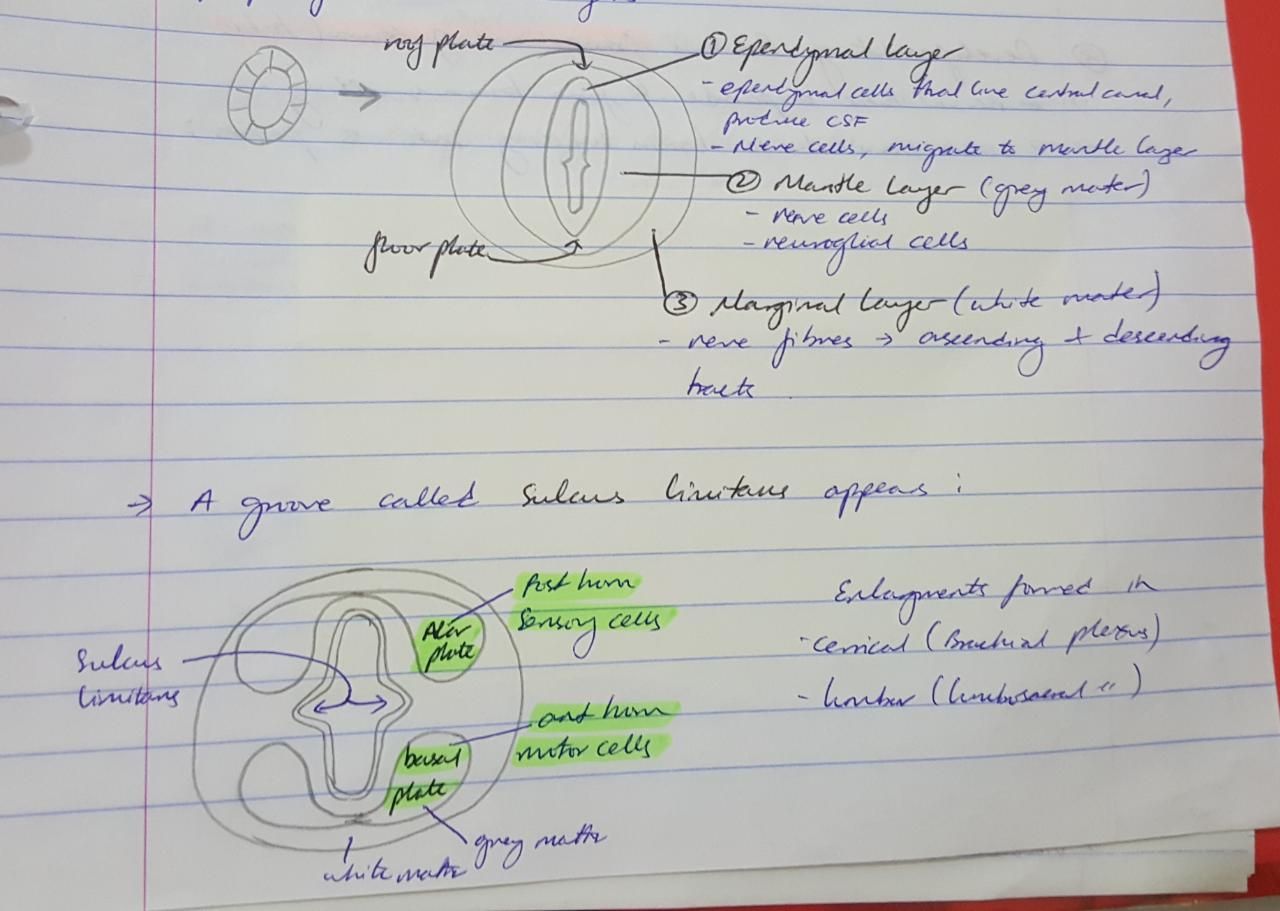 roof plate
① Ependymal layer
- ependymal cells that line central canal,
produce CSF
- Nerve cells, migrate to mantle layer
② Mantle Layer (grey mater)
- nerve cells
- neuroglial cells
floor plate
③ Marginal Layer (white mater)
- nerve fibres → ascending + descending
tracts
→ A groove called Sulcus limitans appears :
Post horn
Sensory cells
Alar
plate
Sulcus
limitans
ant horn
motor cells
basal
plate
grey matter
white matter
Enlagments formed in
- cervical (Brachial plexus)
- lumbar (lumbosacral " )